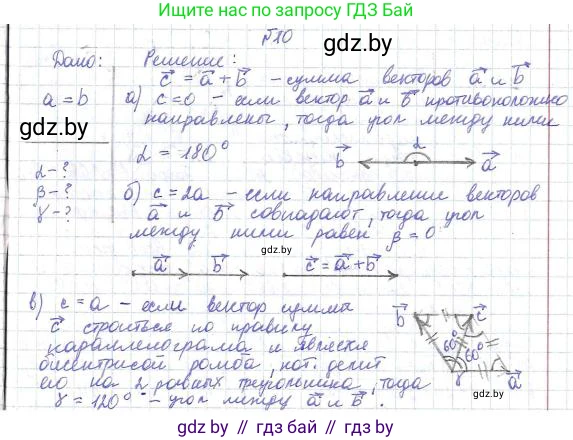 Ищите нас в поисковике ГДЗ Бай
gdz.by
№10
Дано: Решение:
c⃗ = a⃗ + b⃗ - сумма векторов a⃗ и b⃗
a = b а) c=0 - если вектор a⃗ и b⃗ противоположно
gdz.by направлены, тогда угол между ними
α = 180° b⃗ α a⃗
α-?
β-? б) c=2a - если направление векторов
γ-? a⃗ и b⃗ совпадают, тогда угол
между ними равен β = 0
gdz.by
a⃗ b⃗ c⃗ = a⃗ + b⃗
в) c=a - если вектор суммы
c⃗ строиться по правилу
параллелограма и является
биссектрисой ромба, кот. делит
его на 2 равных треугольника, тогда
γ = 120° - угол между a⃗ и b⃗.
b⃗ c⃗
60° 60°
γ a⃗
gdz.by
gdz.by // gdz.by // gdz.by